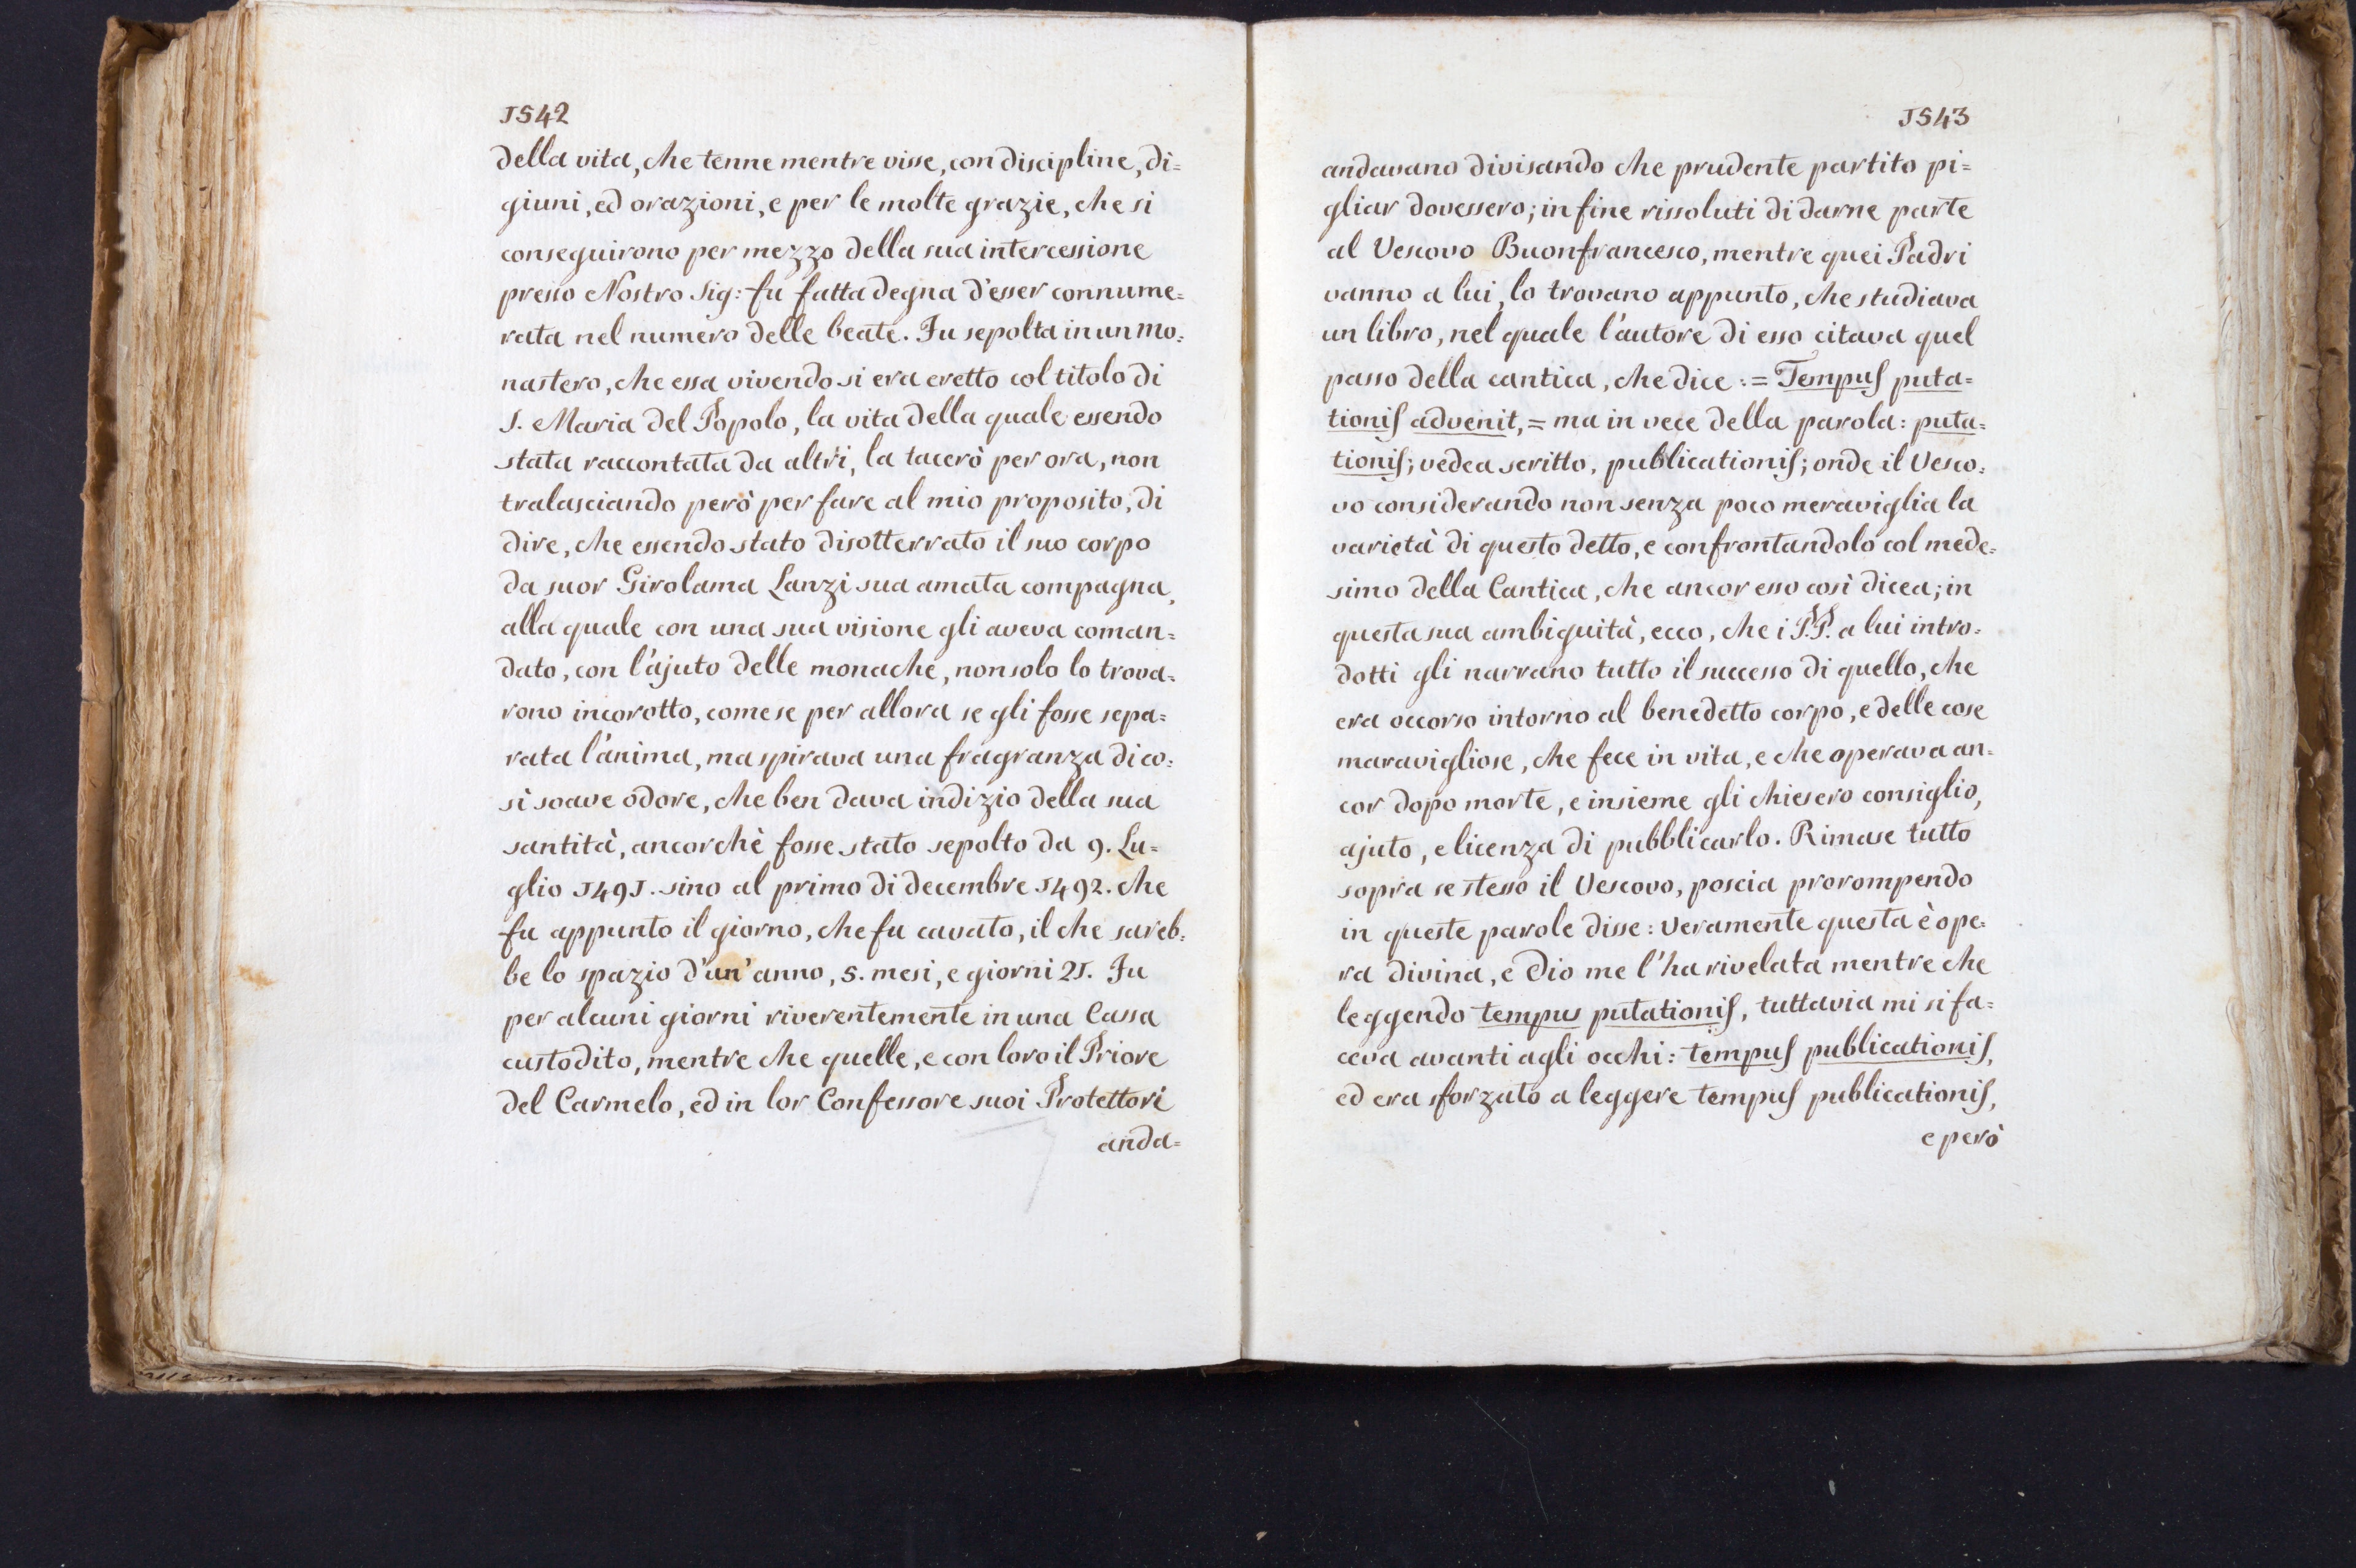 1542
della vita, che tenne mentre visse, con discipline, di=
giuni, ed orazioni, e per le molte grazie, che si
conseguirono per mezzo della sua intercessione
presso Nostro Sig: fu fatta degna d'esser connume=
rata nel numero delle beate. Fu sepolta in un Mo=
nastero, che essa vivendo si era eretto col titolo di
S. Maria del Popolo, la vita della quale essendo
stata raccontata da altri, la tacerò per ora, non
tralasciando però per fare al mio proposito, di
dire, che essendo stato disotterrato il suo corpo
da suor Girolama Lanzi sua amata compagna,
alla quale con una sua visione gli aveva coman=
dato, con l'ajuto delle monache, non solo lo trova=
rono incorotto, come se per allora se gli fosse sepa=
rata l'anima, ma spirava una fragranza di co=
sì soave odore, che ben dava indizio della sua
santità, ancorchè fosse stato sepolto da 9. Lu=
glio 1491. sino al primo di decembre 1492. che
fu appunto il giorno, che fu cavato, il che sareb=
be lo spazio d'un' anno, 5. mesi, e giorni 21. Fu
per alcuni giorni riverentemente in una Cassa
custodito, mentre che quelle, e con loro il Priore
del Carmelo, ed in lor Confessore suoi Protettori
anda=
1543
andavano divisando che prudente partito pi=
gliar dovessero; in fine rissoluti di darne parte
al Vescovo Buonfrancesco, mentre quei Padri
vanno a lui, lo trovano appunto, che studiava
un libro, nel quale l'autore di esso citava quel
passo della cantica, che dice := Tempus puta=
tionis advenit, = ma in vece della parola: puta=
tionis; vedea scritto, publicationis; onde il Vesco=
vo considerando non senza poco meraviglia la
varietà di questo detto, e confrontandolo col mede=
simo della Cantica, che ancor esso così dicea; in
questa sua ambiguità, ecco, che i P.P. a lui intro=
dotti gli narrano tutto il successo di quello, che
era occorso intorno al benedetto corpo, e delle cose
maravigliose, che fece in vita, e che operava an=
cor dopo morte, e insieme gli chiesero consiglio,
ajuto, e licenza di pubblicarlo. Rimase tutto
sopra se stesso il Vescovo, poscia prorompendo
in queste parole disse: veramente questa è ope=
ra divina, e Dio me l'ha rivelata mentre che
leggendo tempus putationis, tuttavia mi si fa=
ceva avanti agli occhi: tempus publicationis,
ed era sforzato a leggere tempus publicationis,
e però